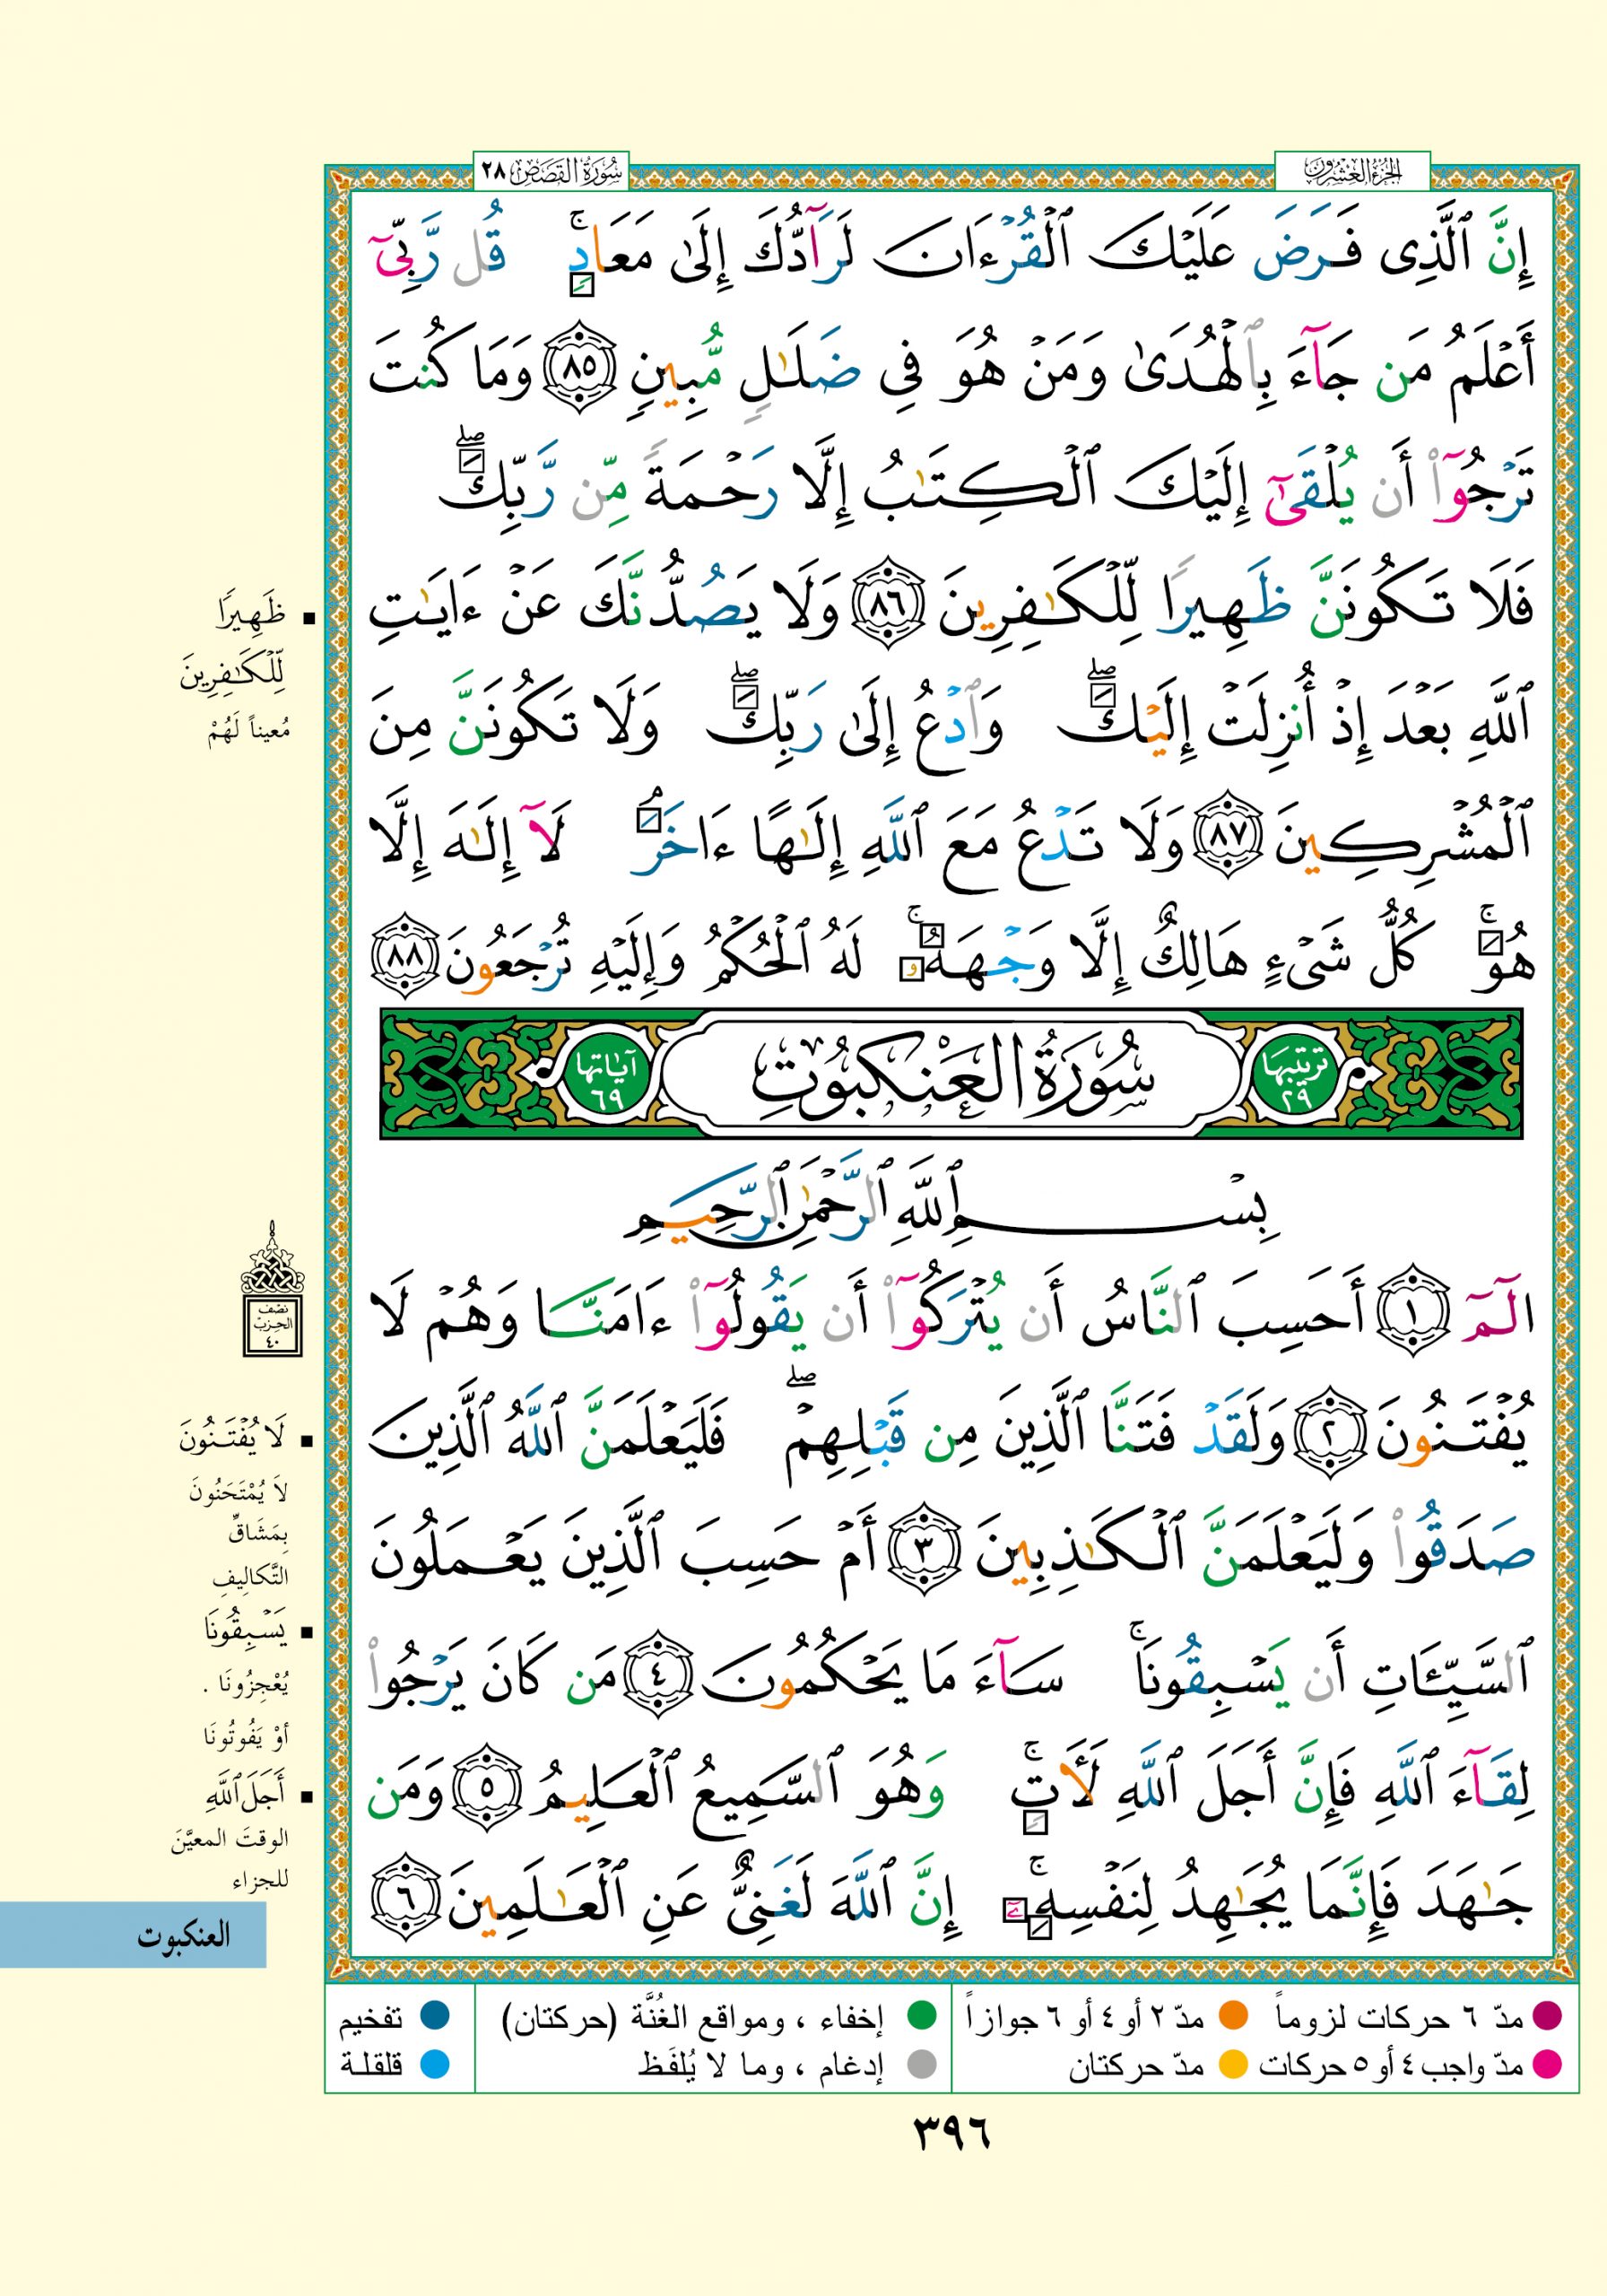 الجزء العشرون
سورة القصص ٢٨
إِنَّ ٱلَّذِى فَرَضَ عَلَيْكَ ٱلْقُرْءَانَ لَرَآدُّكَ إِلَىٰ مَعَادٍۚ قُل رَّبِّىٓ
أَعْلَمُ مَن جَآءَ بِٱلْهُدَىٰ وَمَنْ هُوَ فِى ضَلَـٰلٍ مُّبِينٍ ٨٥ وَمَا كُنتَ
تَرْجُوٓا۟ أَن يُلْقَىٰٓ إِلَيْكَ ٱلْكِتَـٰبُ إِلَّا رَحْمَةً مِّن رَّبِّكَۖ
فَلَا تَكُونَنَّ ظَهِيرًا لِّلْكَـٰفِرِينَ ٨٦ وَلَا يَصُدُّنَّكَ عَنْ ءَايَـٰتِ
ٱللَّهِ بَعْدَ إِذْ أُنزِلَتْ إِلَيْكَۖ وَٱدْعُ إِلَىٰ رَبِّكَۖ وَلَا تَكُونَنَّ مِنَ
ٱلْمُشْرِكِينَ ٨٧ وَلَا تَدْعُ مَعَ ٱللَّهِ إِلَـٰهًا ءَاخَرَۘ لَآ إِلَـٰهَ إِلَّا
هُوَۚ كُلُّ شَىْءٍ هَالِكٌ إِلَّا وَجْهَهُۥۚ لَهُ ٱلْحُكْمُ وَإِلَيْهِ تُرْجَعُونَ ٨٨
ترتيبها ٢٩
سُورَةُ العَنْكبُوتِ
آياتها ٦٩
بِسْمِ ٱللَّهِ ٱلرَّحْمَـٰنِ ٱلرَّحِيمِ
الٓمٓ ١ أَحَسِبَ ٱلنَّاسُ أَن يُتْرَكُوٓا۟ أَن يَقُولُوٓا۟ ءَامَنَّا وَهُمْ لَا
يُفْتَنُونَ ٢ وَلَقَدْ فَتَنَّا ٱلَّذِينَ مِن قَبْلِهِمْۖ فَلَيَعْلَمَنَّ ٱللَّهُ ٱلَّذِينَ
صَدَقُوا۟ وَلَيَعْلَمَنَّ ٱلْكَـٰذِبِينَ ٣ أَمْ حَسِبَ ٱلَّذِينَ يَعْمَلُونَ
ٱلسَّيِّـَٔاتِ أَن يَسْبِقُونَاۚ سَآءَ مَا يَحْكُمُونَ ٤ مَن كَانَ يَرْجُوا۟
لِقَآءَ ٱللَّهِ فَإِنَّ أَجَلَ ٱللَّهِ لَـَٔاتٍۚ وَهُوَ ٱلسَّمِيعُ ٱلْعَلِيمُ ٥ وَمَن
جَـٰهَدَ فَإِنَّمَا يُجَـٰهِدُ لِنَفْسِهِۦٓۚ إِنَّ ٱللَّهَ لَغَنِىٌّ عَنِ ٱلْعَـٰلَمِينَ ٦
ظَهِيرًا
لِّلْكَـٰفِرِينَ
مُعيناً لَهُمْ
نصف
الحزب
٤٠
لَا يُفْتَنُونَ
لاَ يُمْتَحَنُونَ
بِمَشَاقِّ
التَّكالِيفِ
يَسْبِقُونَا
يُعْجِزُونَا .
أوْ يَفُوتُونَا
أَجَلَ ٱللَّهِ
الوقتَ المعيَّنَ
للجزاء
العنكبوت
مدّ ٦ حركات لزوماً
مدّ ٢ أو ٤ أو ٦ جوازاً
إخفاء ، ومواقع الغُنَّة (حركتان)
تفخيم
مدّ واجب ٤ أو ٥ حركات
مدّ حركتان
إدغام ، وما لا يُلفَظ
قلقلة
٣٩٦